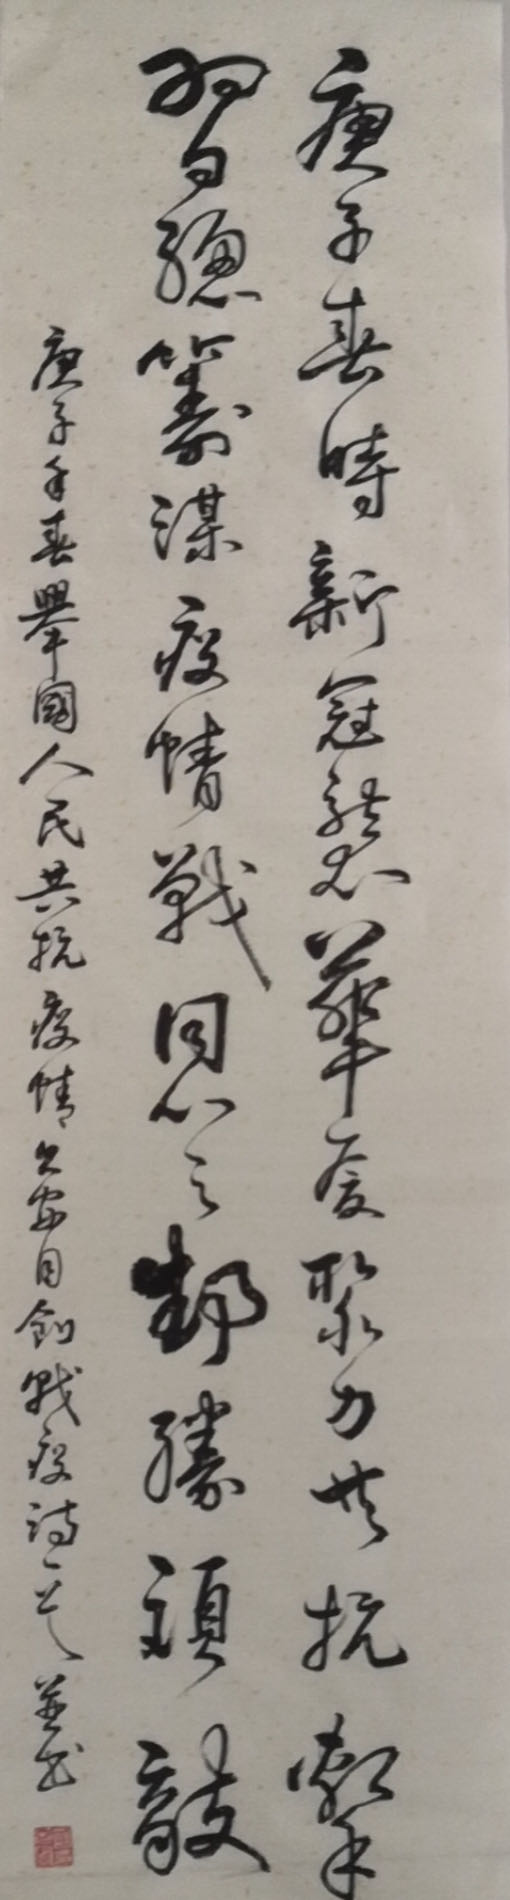 庚子春時新冠襲華夏聚力共抗擊
習總籌謀疫情戰同心之鄴勝頑敵
庚子年春舉國人民共抗疫情自創戰疫詩一首並書